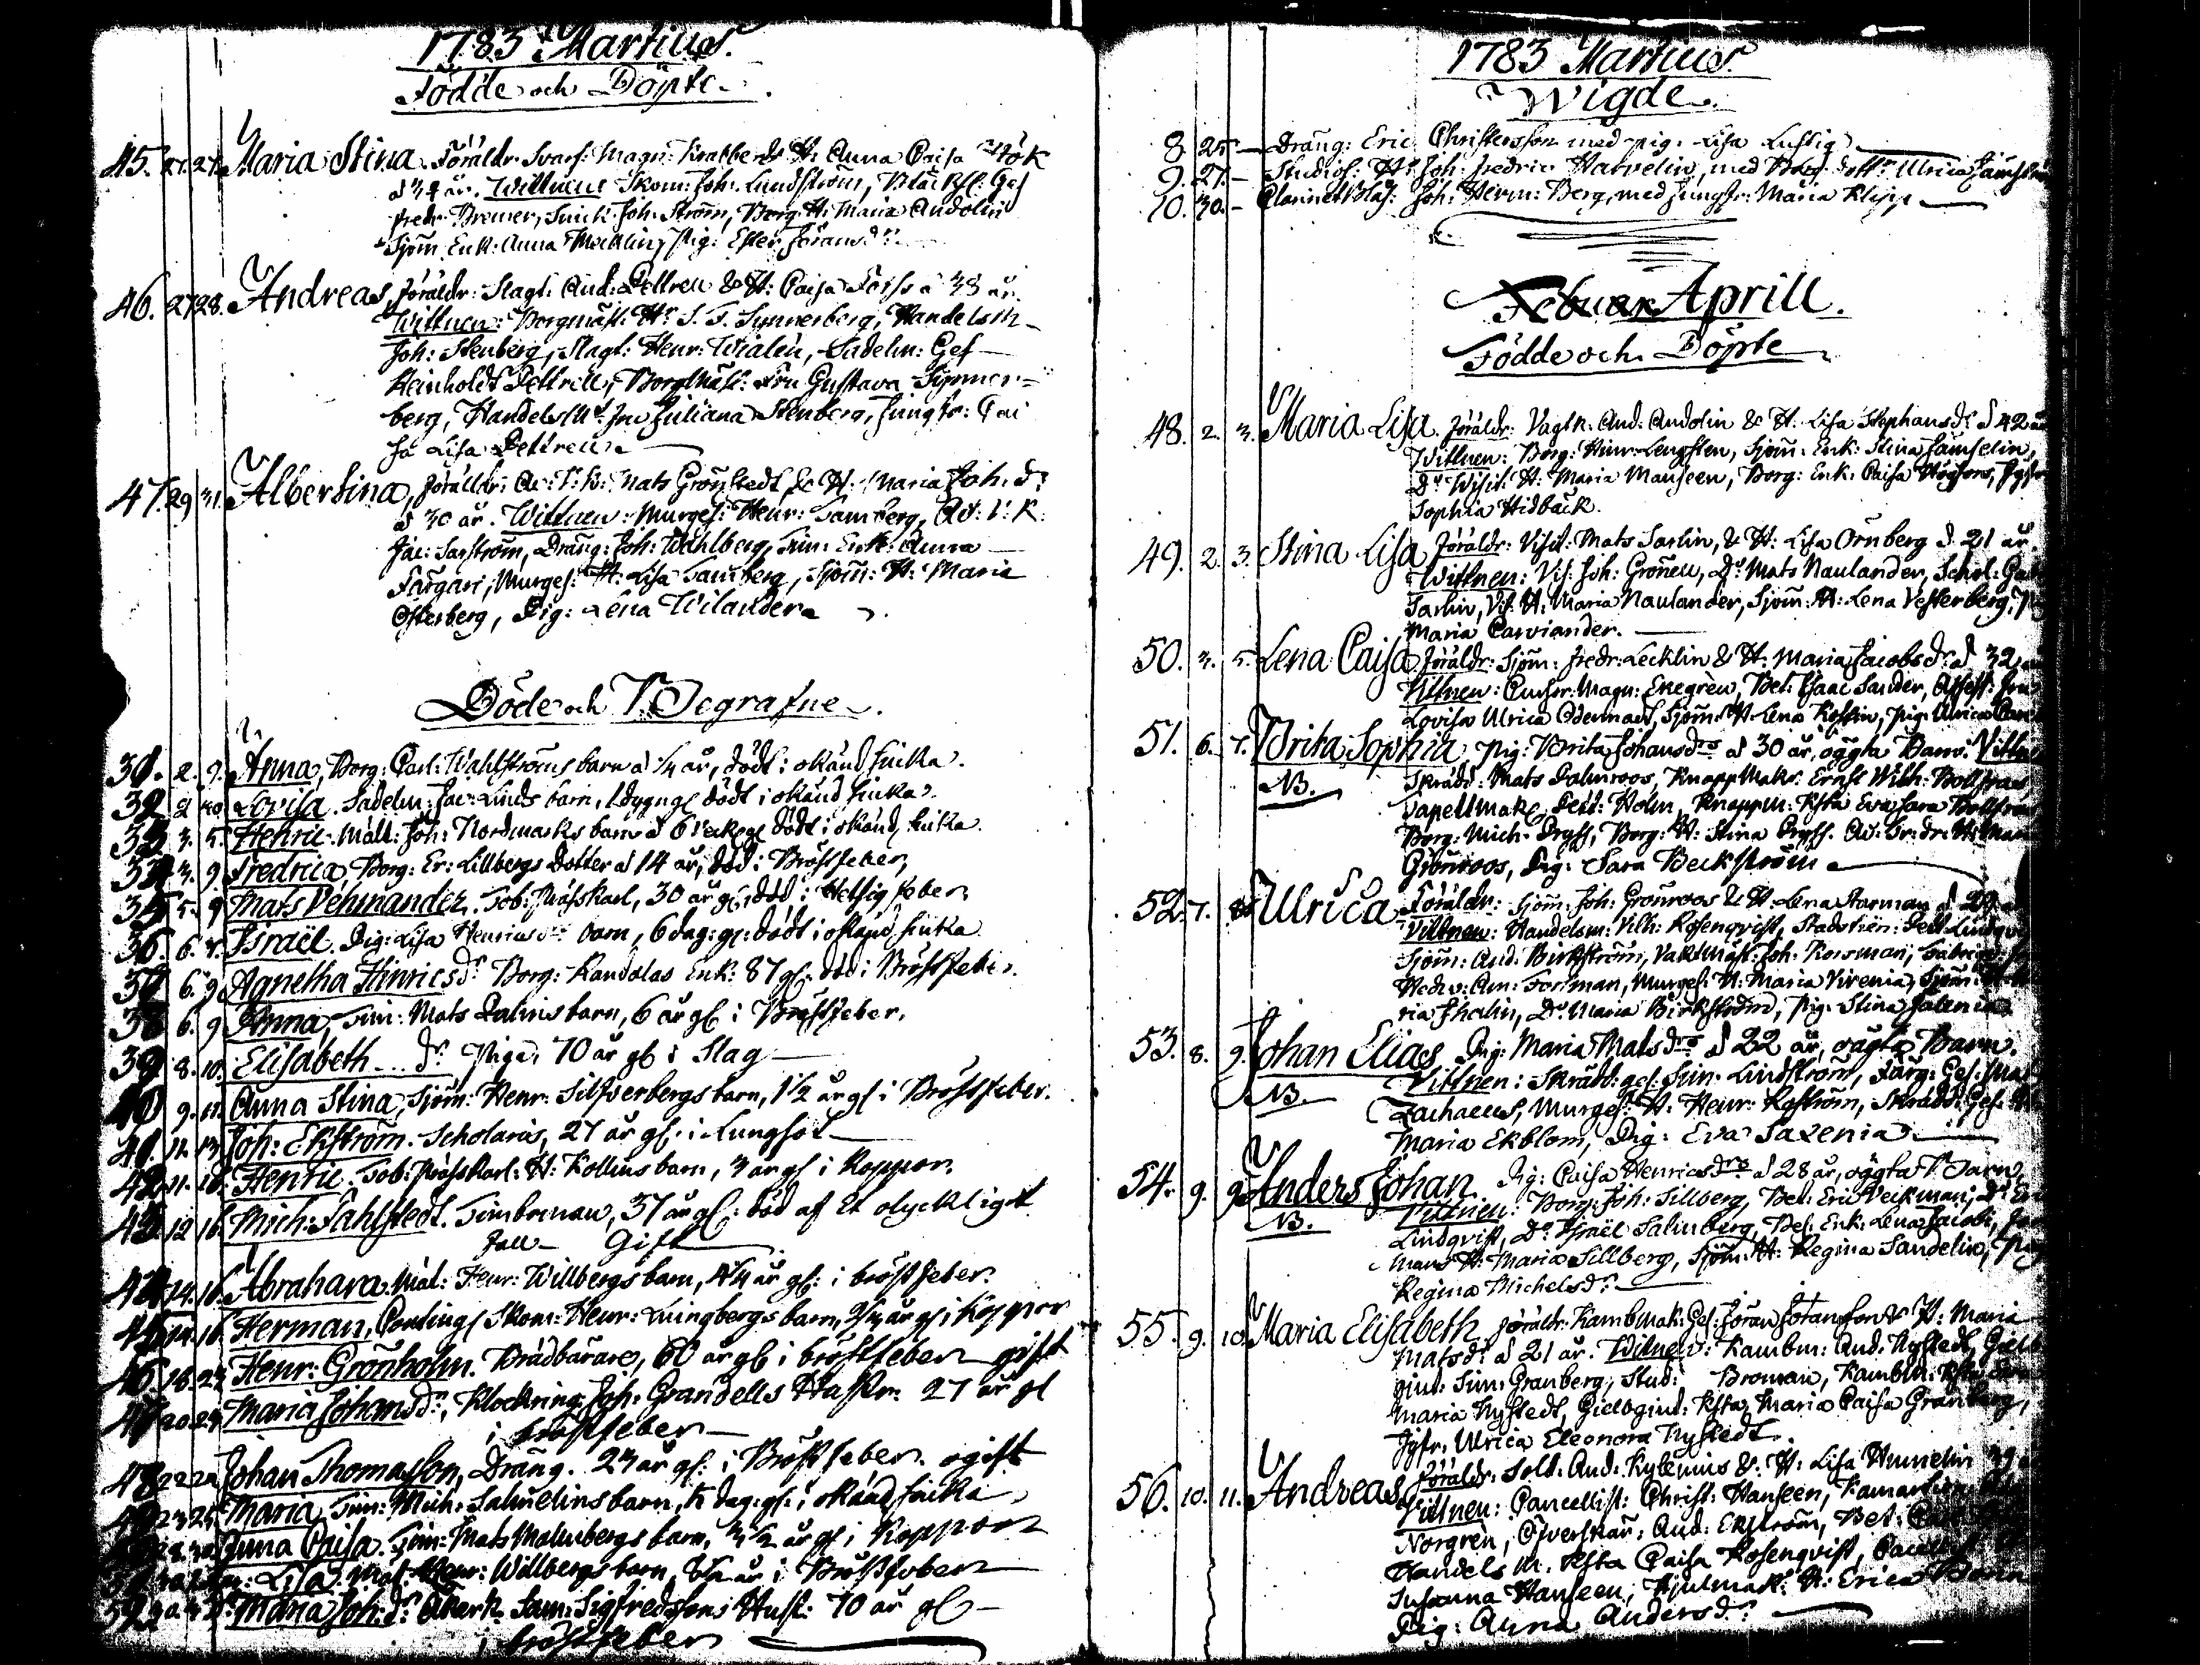 1783 Martius.
Födde och Döpte.
45. 27. 27. Maria Stina. Föräldr. Svarf: Magn: Krabbe & H: Anna Caisa Stök
a 34 år. Wittnen: Skom: Joh: Lundström, Bläcksl: Ges
Fredr: Bremer, Snick: Joh: Ström, Borg: H: Maria Andolin
Sjöm: Enk: Anna Mecklin, Pig: Ester Jöransd:r
46. 27 28. Andreas, föräldr: Slagt: And: Pettrell & H: Caisa Forss a 33 år.
Wittnen: Borgmäst: Hr S. F. Synnerberg, Handelsm
Joh: Stenberg, Slagt: Henr: Wialén, Sadelm: Ges
Reinhold Pettrell, Borgmäst: Fru Gustava Synner=
berg, Handelsm: fru Juliana Stenberg, Jungfr: Cai
sa Lisa Pettrell.
47. 29 31. Albertina, föräldr: Ar: K: Mats Grönstedt & H: Maria Joh: d:r
a 30 år. Wittnen: Murges: Henr: Tamberg, Ar: K:
Jac: Saxström, Dräng: Joh: Wahlberg, Tim: Enk: Anna
Färgari, Murges: H: Lisa Tamberg, Sjöm: H: Maria
Österberg, Pig: Lena Wilander.
Döde och Begrafne.
31. 2. 9. Anna, Borg: Carl: Wahlströms barn a 1/4 år, dödt i okänd siuka.
32. 2 10 Lovisa. Sadelm: Jac: Linds barn, 1 dygn gl dödt i okänd siuka.
33 3. 5. Henric. Mält: Joh: Nordmarks barn a 6 veck: gl dödt i okänd siuka.
34 3. 9. Fredrica Borg: Er: Lillbergs Dotter a 14 år, död i Bröstfeber,
35 5. 9 Mats Vehmander. Tob: Prässkarl, 30 år gl, död i Hettsig feber.
36. 6. 7. Israël. Pig: Lisa Henricsd:rs barn, 6 dag: gl: dödt i okänd siuka.
37 6. 9 Agnetha Hinricsd:r Borg: Randelas Enk: 87 gl. död i Bröstfeber.
38 6. 9 Anna, Tim: Mats Palins barn, 6 år gl: i Bröstfeber.
39 8. 10. Elisabeth ... d:r Piga, 70 år gl i Slag
40 9. 11. Anna Stina, Sjöm: Henr: Silfverbergs barn, 1 1/2 år gl i Bröstfeber.
41 11. 13. Joh: Ekström. Scholaris, 27 år gl. i Lungsot
42. 11. 16. Henric. Tob: Prässkarl: H: Kollins barn, 3 år gl i Koppor.
43. 12 16. Mich: Fahlstedt. Timberman, 37 år gl: död af et olyckligit
fall Gift
44 14. 16. Abraham. Mål: Henr: Willbergs barn, 1/4 år gl: i bröstfeber.
45 14. 16. Herman, Conting: Skom: Henr: Liungbergs barn, 3/4 år gl i Koppor
46 16. 23 Henr: Grönholm. Brädbärare, 60 år gl i bröstfeber gift
47 20 23 Maria Johansd:r, Klockring: Joh: Grandells Hustr: 27 år gl
i bröstfeber
48 22 23 Johan Thomasson, Dräng. 23 år gl: i Bröstfeber ogift
49 23 25 Maria, Tim: Mich: Salmelins barn, dag: gl: i okänd siuka
Anna Caisa. Tim: Mats Malmbergs barn, 3 1/2 år gl i Koppor
Lisa. Mål: Henr: Willbergs barn, år i Bröstfeber
52 Maria Joh: d:r Åkark: Sam: Sigfredssons Hust: 70 år gl
i bröstfeber
1783 Martius.
Wigde.
8. 25. Dräng: Eric Christersson med pig: Lisa Lustig
9. 27. Studios: Hr Joh: Fredric Harnelin, med Borg: dott:r Ulrica
10. 30. Clarinet Blås: Joh: Herm: Berg, med Jungfr: Maria Klipp
Februar Aprill.
Födde och Döpte
48. 2. 3. Maria Lisa. föräldr: Vagtk: And: Andolin & H: Lisa Stephansd:r a 42 år
Wittnen: Borg: Hinr: Lengsten, Sjöm: Enk: Stina Samselin,
D:o Visit: H: Maria Manseen, Borg: Enk: Caisa Högfors, Jgfr
Sophia Hidbäck.
49. 2. 3. Stina Lisa föräldr: Visit: Mats Sarlin, & H: Lisa Örnberg a 21 år.
Wittnen: Vis: Joh: Gronén, D:o Mats Naulander, Schol:
Sarlin, Vis: H: Maria Naulander, Sjöm: H: Lena Vesterberg,
Maria Carviander.
50. 3. 5. Lena Caisa föräldr: Sjöm: Fredr: Lecklin & H: Maria Jacobsd:r a 32
Vittnen: Magn: Ekegrén, Bet: Isaac Sander, Assess: fru
Lovisa Ulrica Odenmarck, Sjöm: H: Lena Kossin, Pig: Ulrica
51. 6. 7. Brita Sophia, Pig: Brita Johansd:rs a 30 år, oägta Barn.
NB. Skrädd: Mats Palmroos, Knapp Mak: Ernst Wilh: Bollstras
Tapettmak: Petd: Holm, Knappm: Hsta Eva Sara
Borg: Mich: Pryss, Borg: H: Stina Pryss.
Grönroos, Pig: Sara Beckström
52. 7. 8. Ulrica Föräldr: Sjöm: Joh: Grönroos & H: Lena Storman a 29
Vittnen: Handelsm: Vilh: Rosenqvist, Stadstien: Pett: Lindqv
Sjöm: And: Birkström, Vaktmäst: Joh: Korsman,
Hedv: Am: Forsman, Murges: H: Maria Virenia, Sjöm:
ria Thelin, D:o Maria Birkström, Pig: Stina Salenia
53. 8. 9. Johan Elias Pig: Maria Matsd:rs a 22 år, oägta Barn.
NB. Vittnen: Skrädd: ges: Sim: Lindström, Färg: Ges:
Zachaeus, Murges: H: Henr: Roström, Skrädd: Ges:
Maria Ekblom, Pig: Eva Saxenia
54. 9. 9. Anders Johan Pig: Caisa Henricsd:rs a 28 år, oägta Barn.
NB. Vittnen: Borg: Joh: Sillberg, Bet: Eric Veckman,
Lindqvist, D:o Israël Salmberg, Bes: Enk: Lena Jacobi,
mans H: Maria Sillberg, Sjöm: H: Regina Sandelin,
Regina Michelsd:r
55. 9. 10. Maria Elisabeth föräldr: Kambmak: Ges: Jöran Jöransson & H: Maria
Matsd:r a 21 år. Witnen: Kambm: And: Nystedt,
giut: Sim: Granberg, Stud: Broman, Kambm: Hsta
Maria Nystedt, Gielbgiut: Hsta Maria Caisa Granberg,
Jgfr, Ulrica Eleonora Nystedt.
56. 10. 11. Andreas föräldr: Sold: And: Kylenius & H: Lisa Hunnelin 39
Vittnen: Cancellist: Christ: Hanseen,
Norgrén, Öfverskär: And: Ekström, Bet:
Handels M. Hsta Caisa Rosenqvist,
Susanna Hanseen, Hjulmak: H: Erica
Pig: Anna Andersd:r